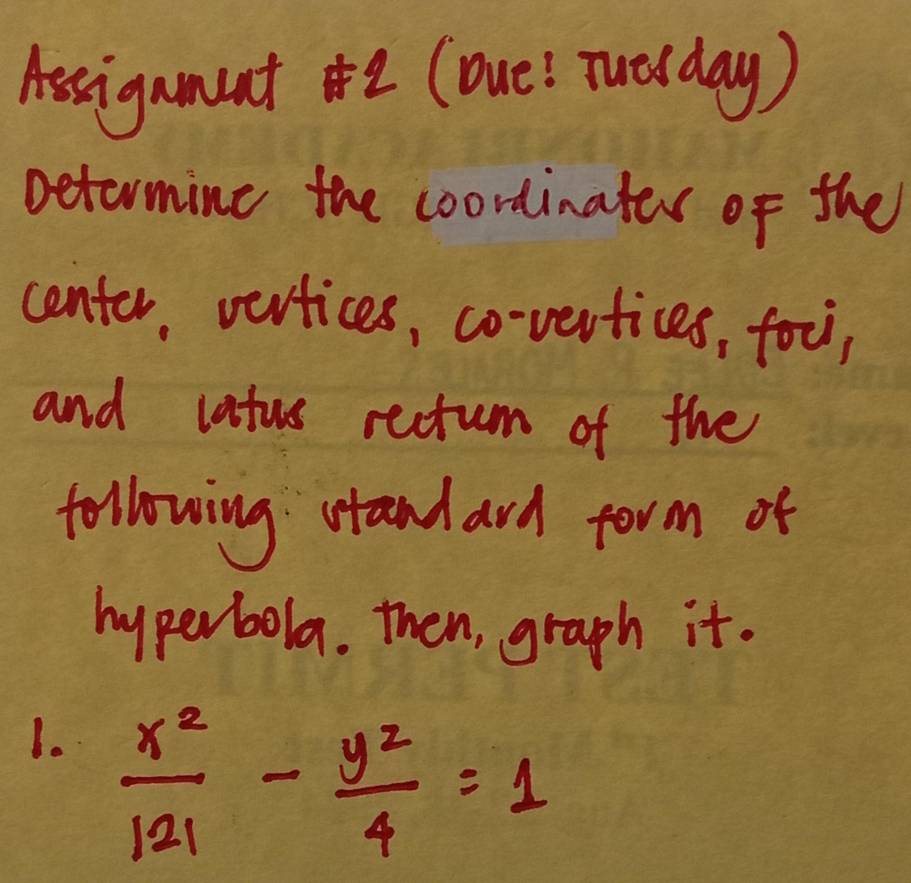 Assignment #2 (Due: Tuesday)
Determine the coordinates of the
center, vertices, co-vertices, foci,
and latus rectum of the
following standard form of
hyperbola. Then, graph it.
1. x²/121 - y²/4 = 1